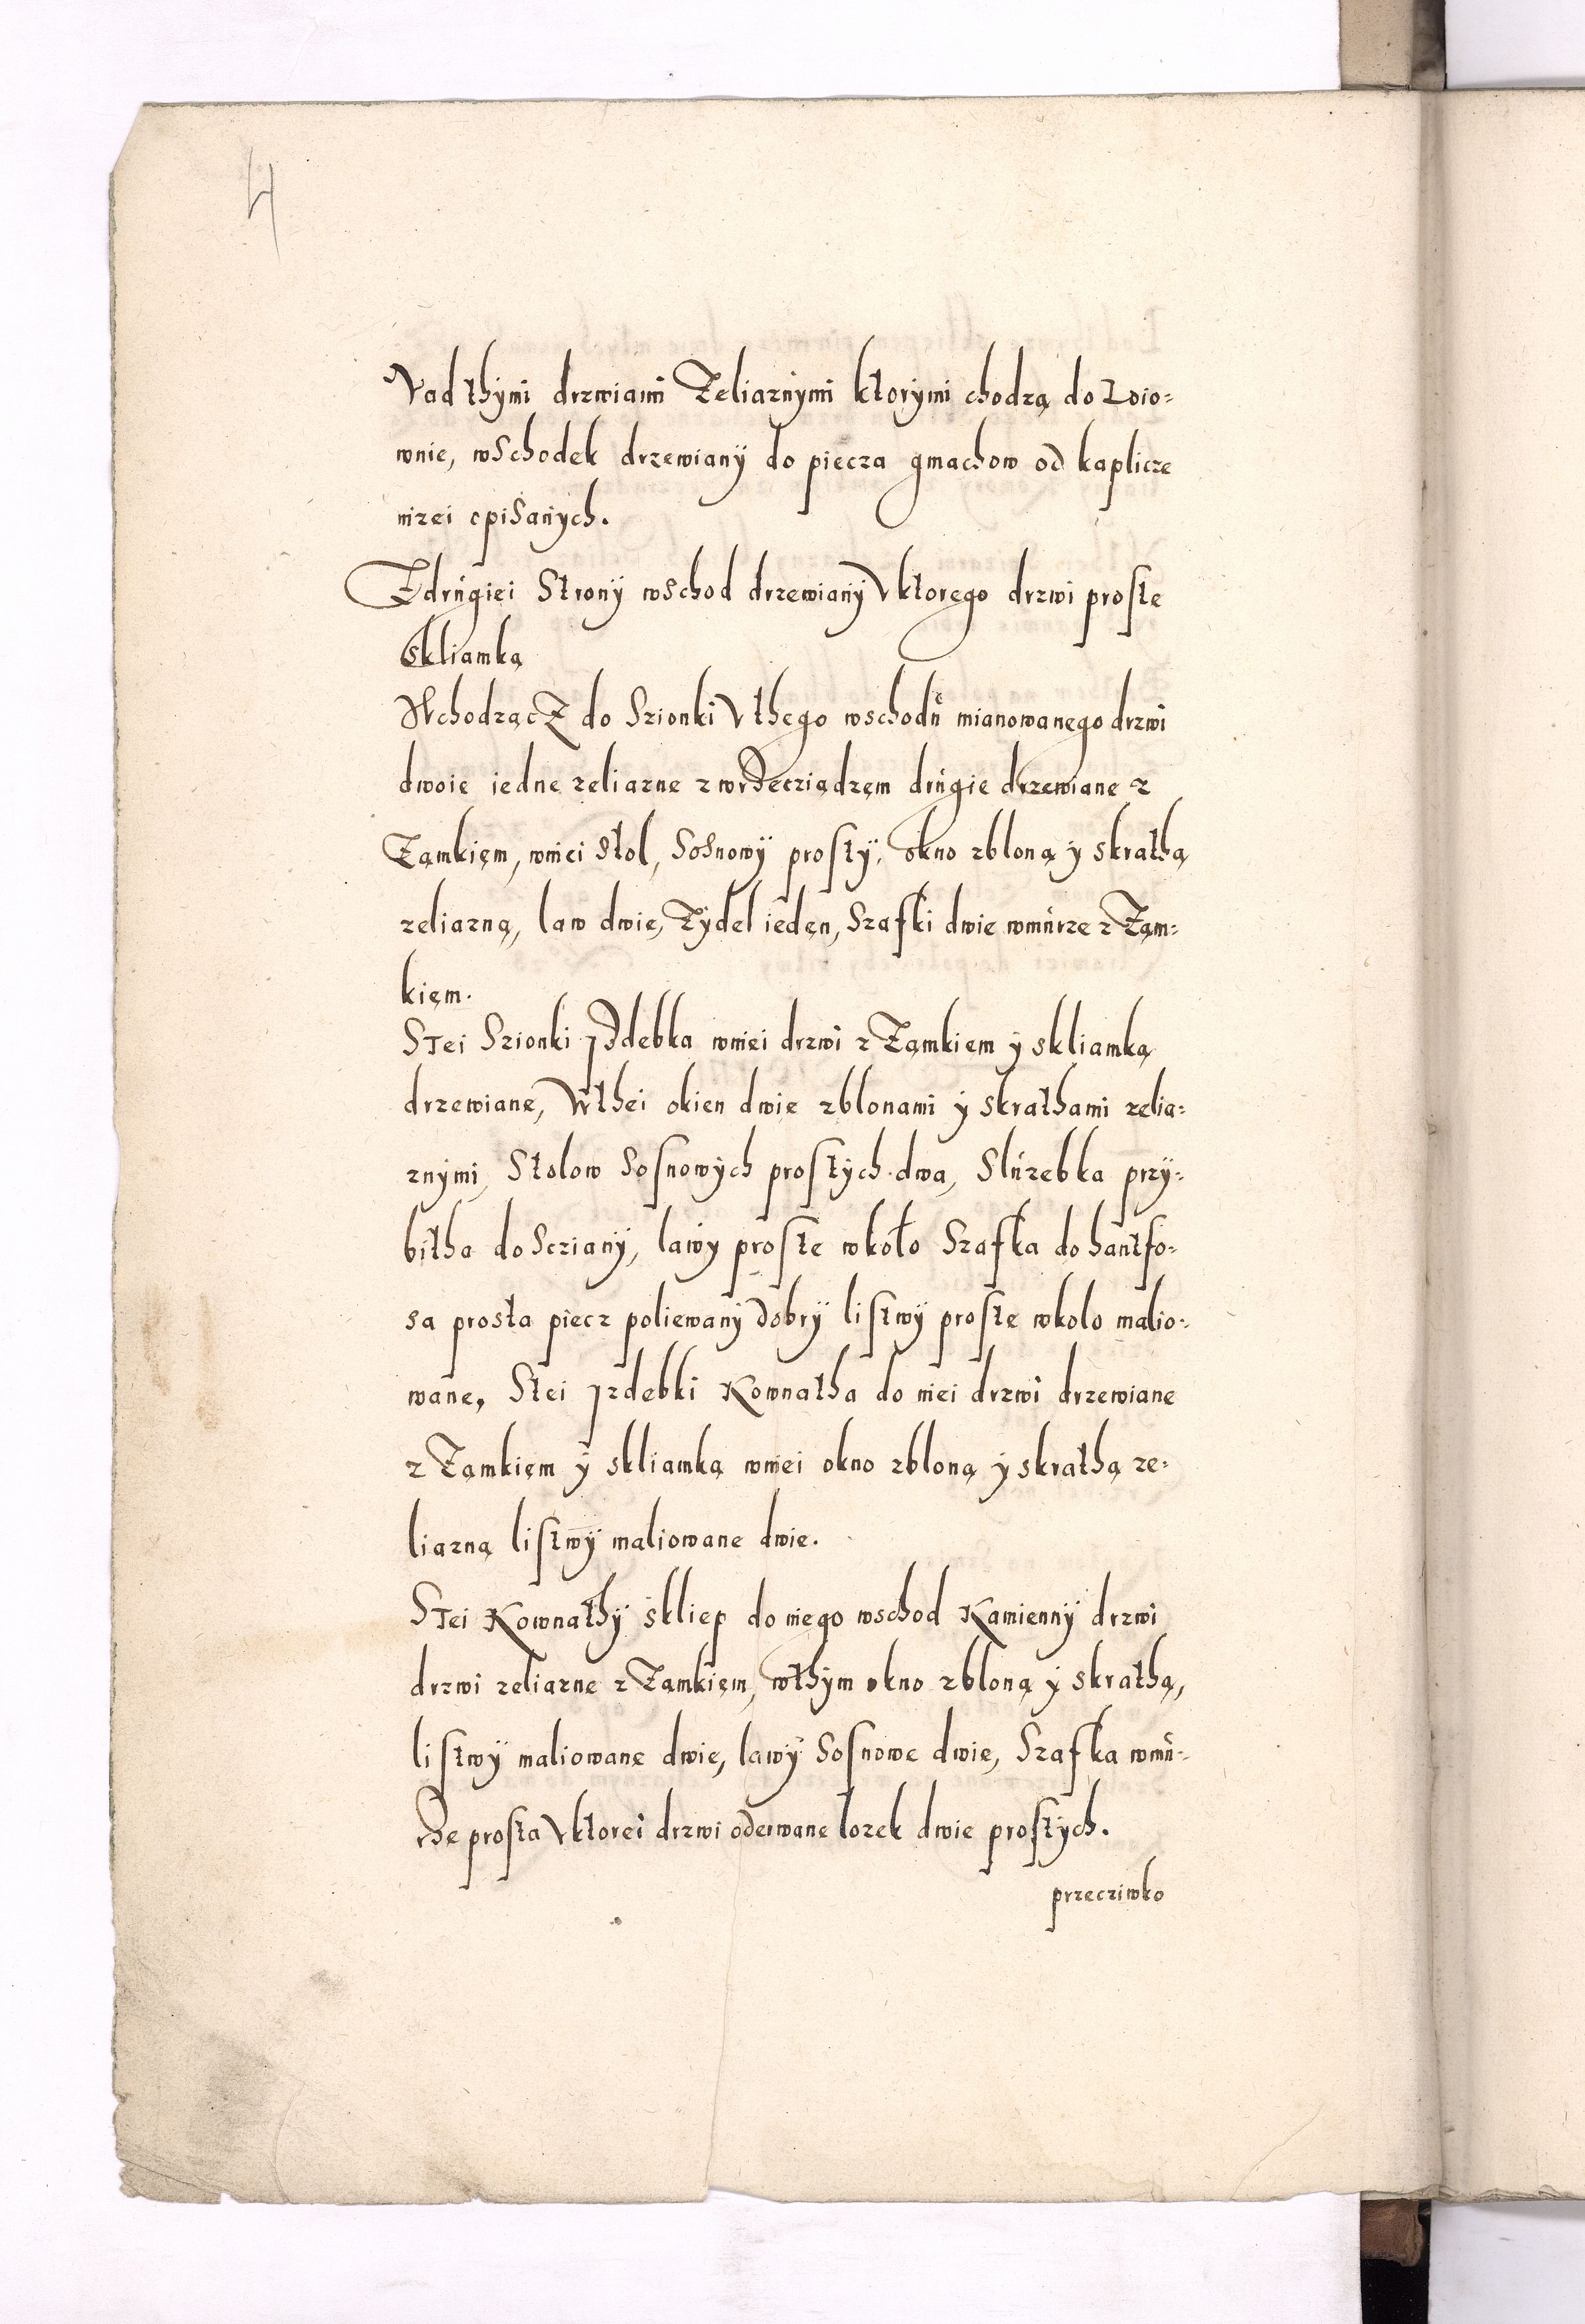 4
Nad thÿmi drzwiami Zeliaznÿmi ktorÿmi chodzą do Zoio=
wnie, wschodek drzewianÿ do piecza gmachow od kaplicze
nizei opisanÿch.
Zdrugiei Stronÿ wschod drzewianÿ V ktorego drzwi proste
Skliamką
Wchodzącz do Szionki V thego wschodu mianowanego drzwi
dwoie iedne zeliazne z wrzecziądzem drugie drzewiane z
Zamkięm, wniei stol, Sosnowÿ prostÿ, okno zbloną ÿ skrathą
zeliazną, law dwie, Zÿdel ieden, Szafki dwie wmurze z Zam=
kięm.
Stei Szionki Jzdebka wniei drzwi z Zamkiem ÿ skliamką
drzewiane, Wthei okien dwie zblonami ÿ skrathami zelia=
znÿmi, Stolow Sosnowÿch prostÿch dwa, Sluzebka przÿ=
bitha do Sczianÿ, lawÿ proste wkoło Szafka do hantfo=
sa prosta piecz poliewanÿ dobrÿ listwÿ proste wkolo malio=
wane, Stei Jzdebki Kownatha do niei drzwi drzewiane
z Zamkięm ÿ skliamką wniei okno zbloną ÿ skrathą ze=
liazną listwÿ maliowane dwie.
Stei Kownathÿ skliep do niego wschod Kamiennÿ drzwi
drzwi zeliazne z Zamkięm, wthÿm okno zbloną ÿ skrathą,
listwÿ maliowane dwie, lawÿ Sosnowe dwie, Szafka wmu=
rze prosta V ktorei drzwi oderwane lozek dwie prostÿch.
przecziwko